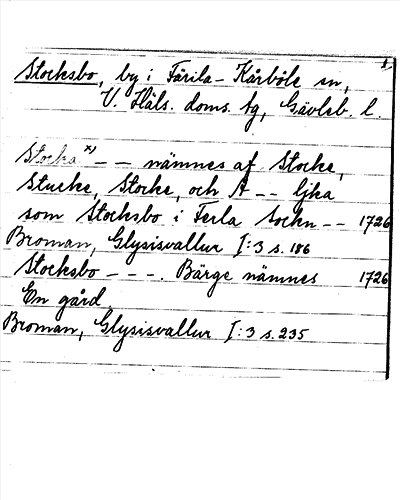 1.
Stocksbo, by i Färila-Kårböle sn,
V. Häls. doms. tg, Gävleb. l.
Stocka x) - - nämnes af Stocke,
Stucke, Stocke, och A - - ljka
som Stocksbo i Ferla Sockn - - 1726
Broman, Glysisvallur I:3 s. 186
Stocksbo - - - . Bärge nämnes 1726
En gård
Broman, Glysisvallur I:3 s. 235